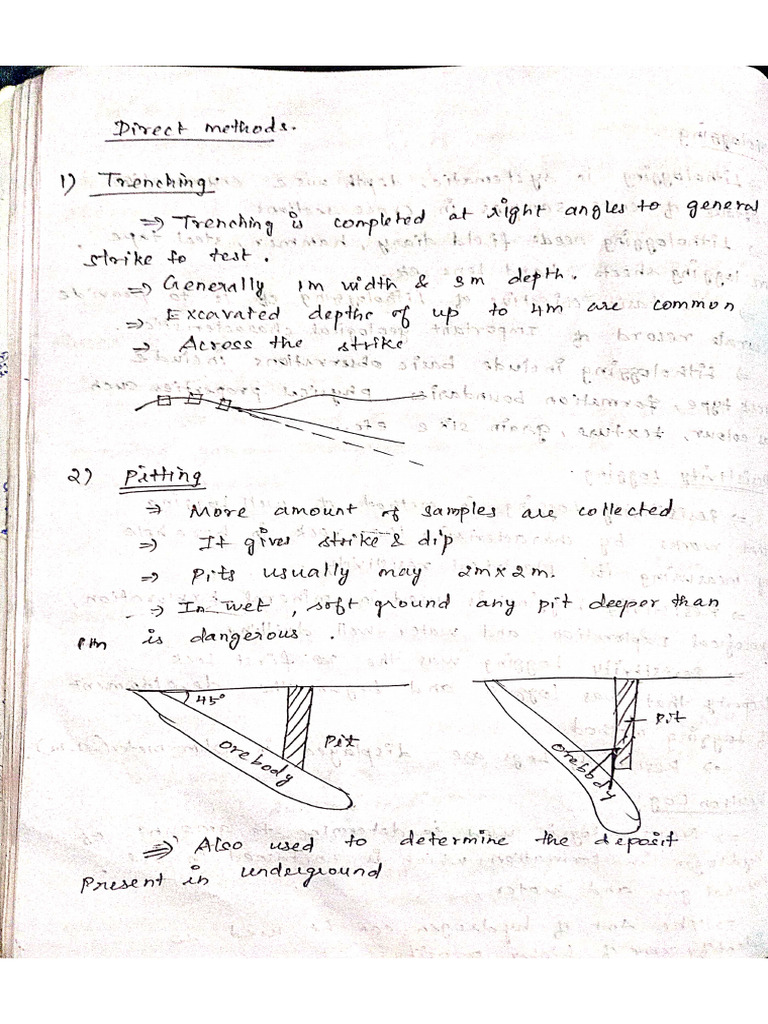 Direct methods.
1) Trenching.
⇒ Trenching is completed at right angles to general
strike fo test.
⇒ Generally 1m width & 3m depth.
⇒ Excavated depths of up to 4m are common
⇒ Across the strike
2) Pitting
⇒ More amount of samples are collected
⇒ It gives strike & dip
⇒ Pits usually may 2m x 2m.
⇒ In wet, soft ground any pit deeper than
is dangerous.
45° Pit orebody
Pit orebody
⇒ Also used to determine the deposit
present in underground